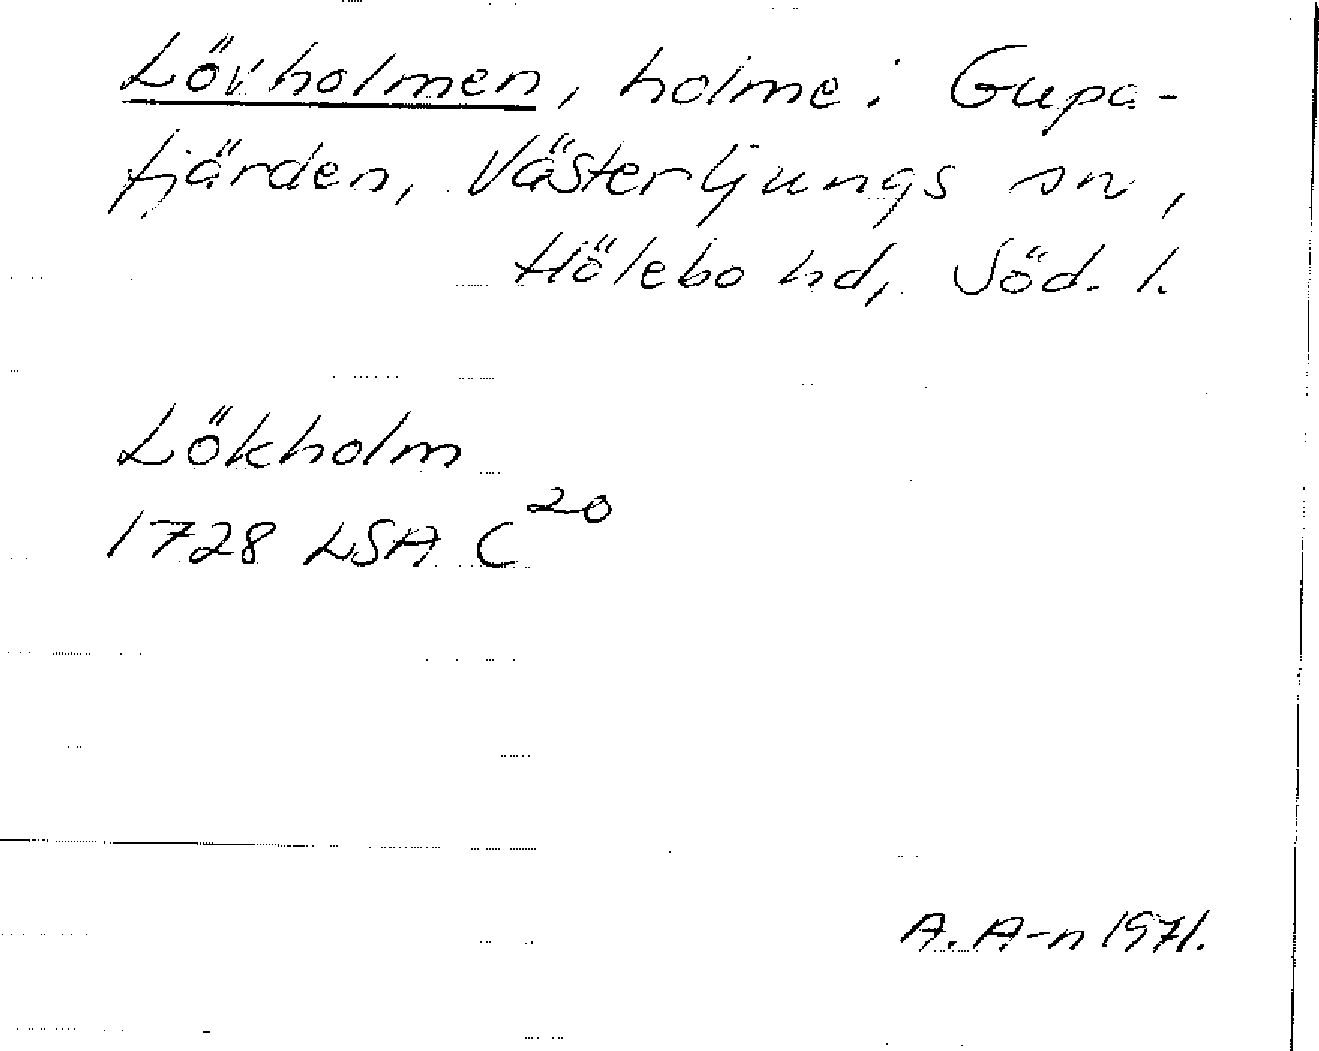 Lövholmen, holme i Gupa-
fjärden, Västerljungs sn,
Hölebo hd, Söd. l.
Lökholm
1728 LSA C 20
A. A-n 1971.